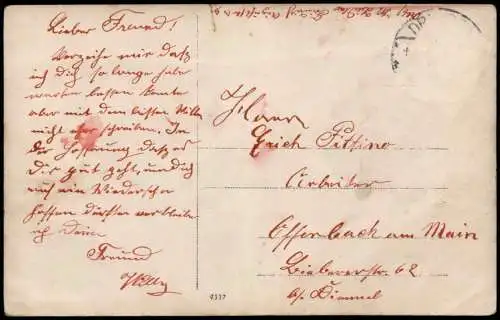 Lieber Freund!
Verzeihe mir daß
ich dich so lange habe
warten lassen konnte
aber mit dem besten Willen
nicht eher schreiben. In
der Hoffnung daß es
Dir gut geht, und ich
auf ein Wiedersehn
hoffen dürfte verbleibe
ich Dein
Freund
Willy
Herrn
Erich Pittino
Arbeiter
Offenbach am Main
Biebererstr. 62
b/. Dimmel
4337